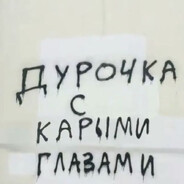 ДУРОЧКА
С
КАРЫМИ
ГЛАЗАМИ